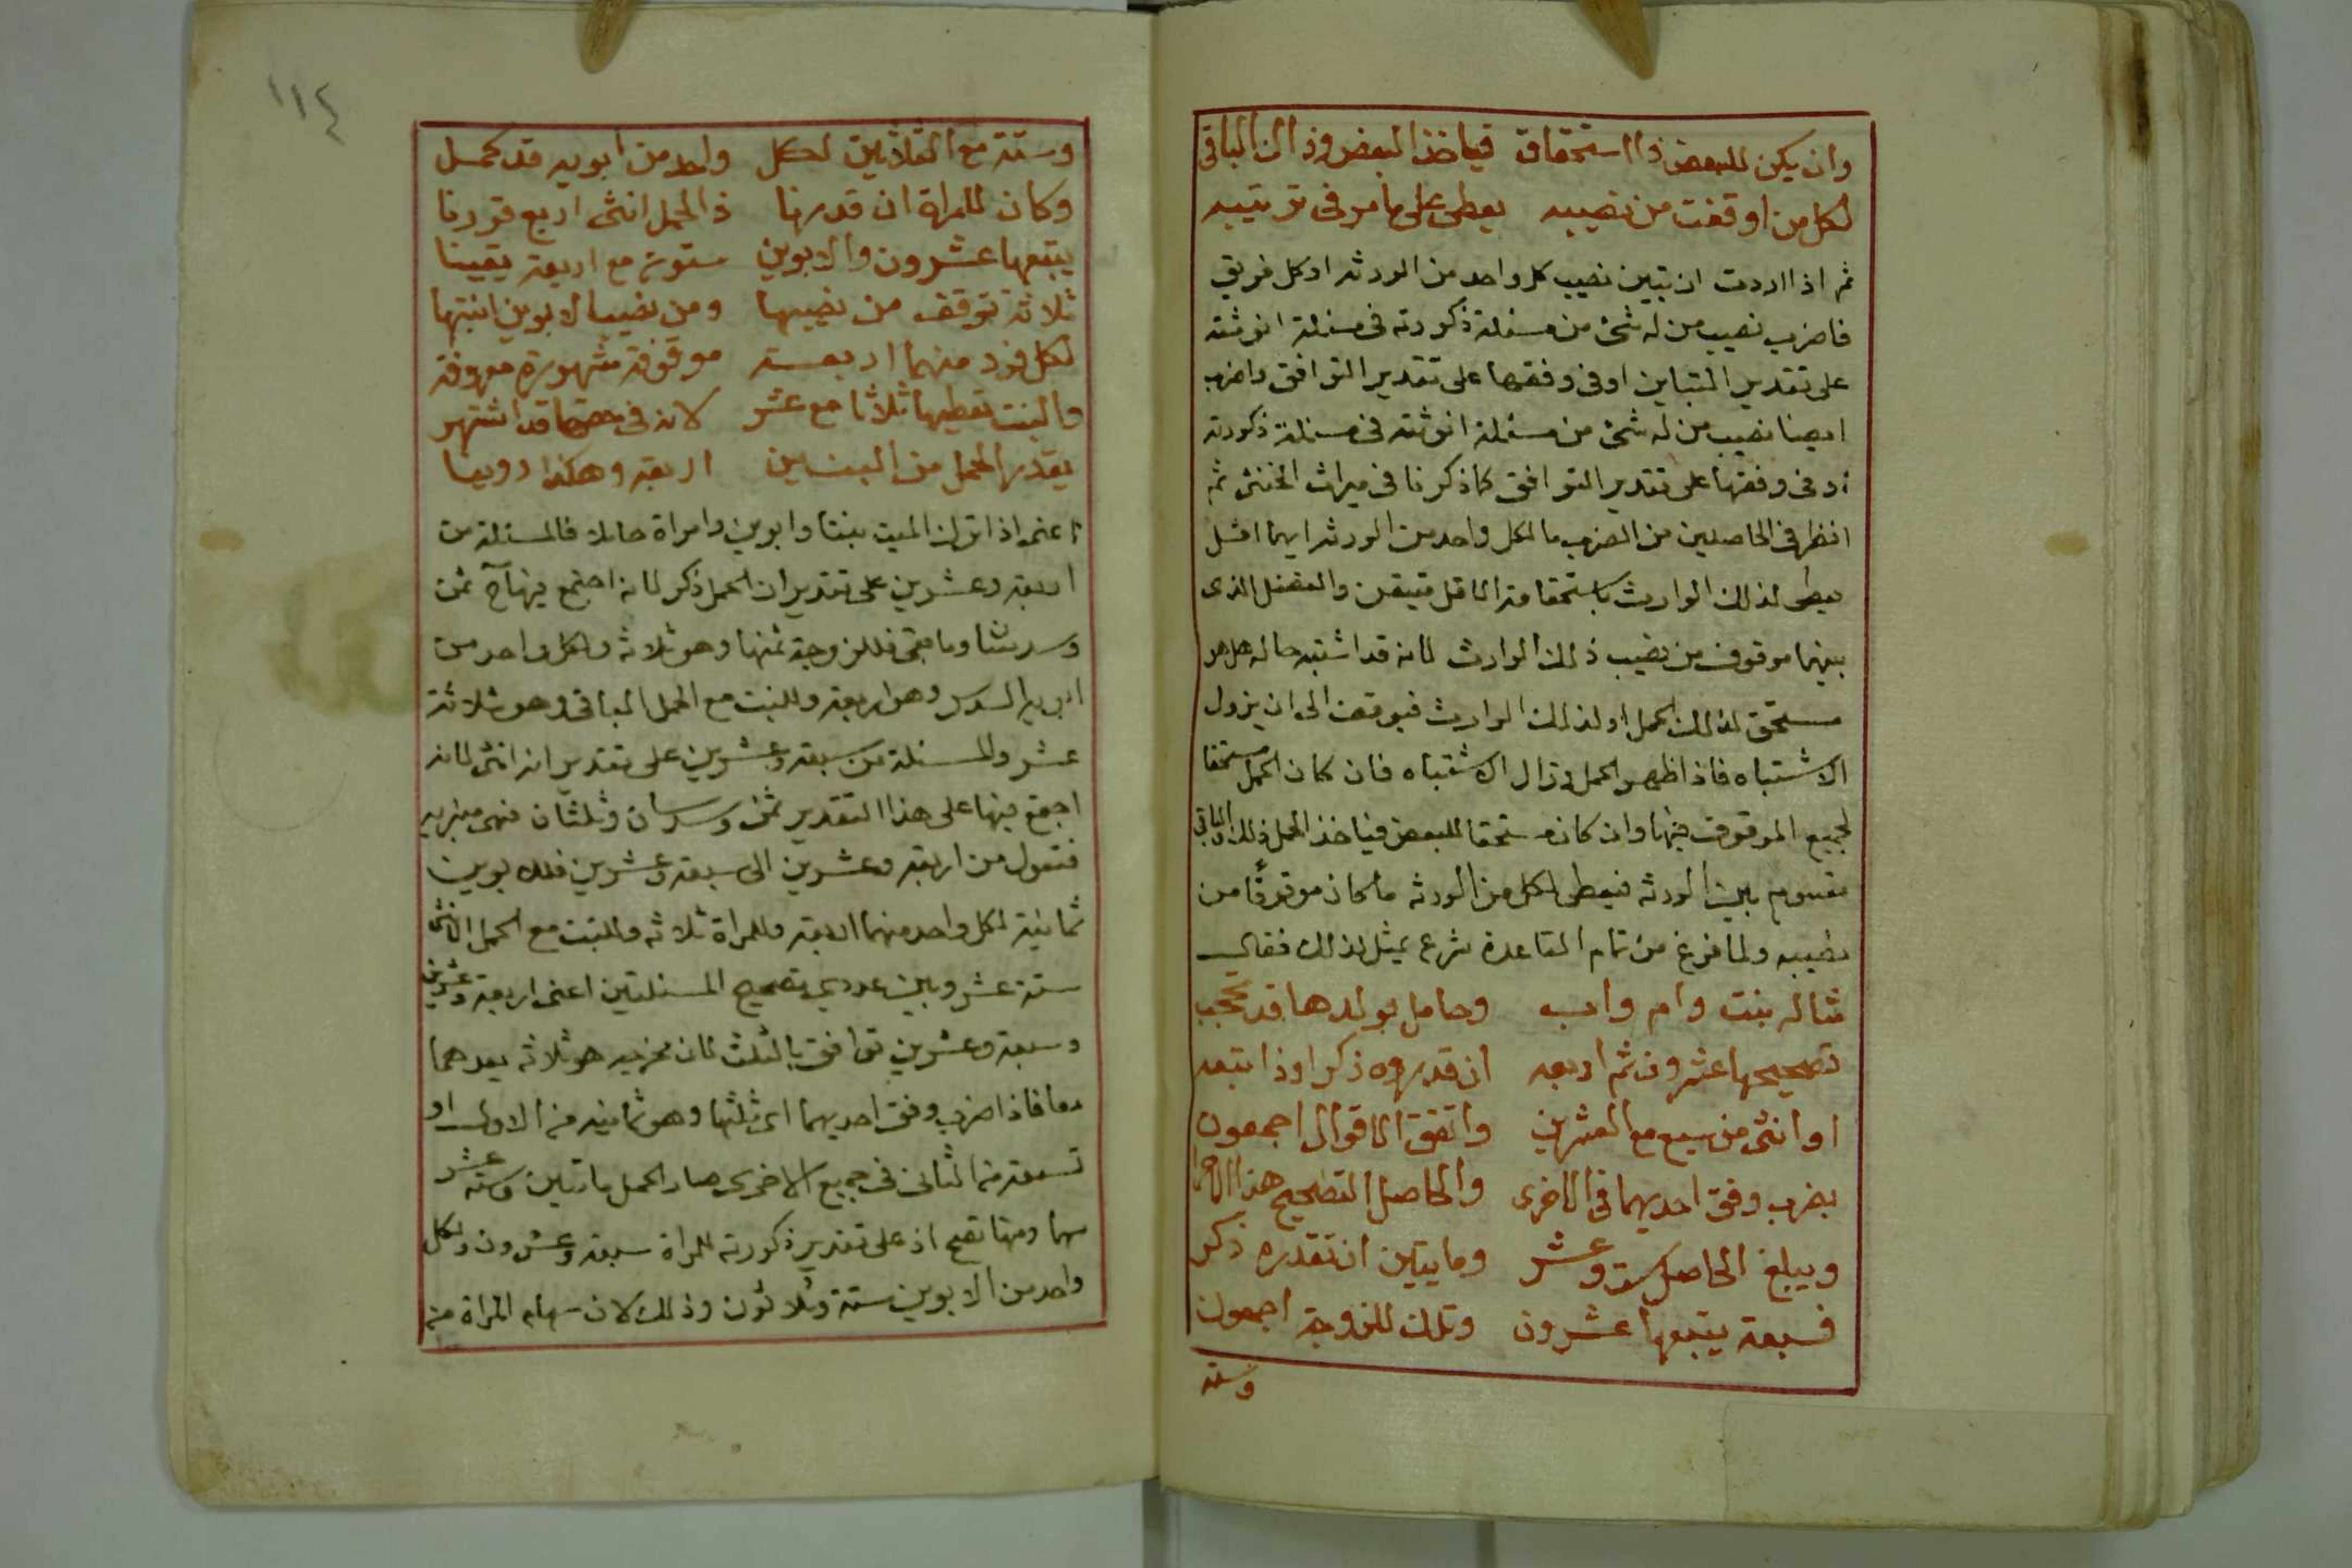 وان يكن للبعض ذا استحقاق فياخذ البعض وذاك الباقى
لكل من اوقفت من نصيبه يعطى على ما مر فى ترتيبه
ثم اذا اردت ان تبين نصيب كل واحد من الورثه او كل فريق
فاضرب نصيب من له شئ من مسئلة ذكورته فى مسئلة انوثته
على تقدير التباين او فى وفقها على تقدير التوافق واضرب
ايضا نصيب من له شئ من مسئلة انوثته فى مسئلة ذكورته
او فى وفقها على تقدير التوافق كما ذكرنا فى ميراث الخنثى ثم
انظر فى الحاصلين من الضرب ما لكل واحد من الورثه ايهما اقل
يعطى لذلك الوارث لاستحقاقه الاقل متيقن والفضل الذى
بينهما موقوف من نصيب ذلك الوارث لانه قد اشتبه حاله هل هو
مستحق لذلك الحمل او لذلك الوارث فيوقف الى ان يزول
الاشتباه فاذا ظهر الحمل وزال الاشتباه فان كان الحمل مستحقا
لجميع الموقوف فبها وان كان مستحقا للبعض فياخذ الحمل ذلك والباقى
مقسوم بين الورثه فيعطى لكل من الورثه ما كان موقوفا من
نصيبه ولما فرغ من تمام القاعدة شرع يمثل لذلك فقال
مثاله بنت وام واب وحامل بولدها قد تحجب
تصحيحها عشرون ثم اربعه ان قدروه ذكرا وذا تبعه
او انثى من سبع مع العشرين واتفق الاقوال اجمعون
بضرب وفق احديهما فى الاخرى والحاصل التصحيح هذا
ويبلغ الحاصل ستة وعشر ومايتين ان تقدره ذكر
فسبعة يتبعها عشرون وتلك للزوجة اجمعون
وستة
١١٤
وستة مع الثلاثين لكل واحد من ابويه قد كمل
وكان للمراة ان قدرنا ذا الحمل انثى اربع قررنا
يتبعها عشرون والابوين ستون مع اربعة يقينا
ثلاثة توقف من نصيبها ومن نصيب الابوين انتبها
لكل فرد منهما اربعة موقوفة مشهورة معروفة
والبنت تعطيها ثلاثا مع عشر لانه فى حقها قد اشتهر
يقدر الحمل من البنين اربعة وهكذا روينا
اعنى اذا ترك الميت بنتا وابوين وامراة حاملا فالمسئلة من
اربعة وعشرين على تقدير ان الحمل ذكر لانه اجتمع فيها ح ثمن
وسدسان وما بقى فللزوجة ثمنها وهو ثلاثه ولكل واحد من
ابويه السدس وهو اربعة وللبنت مع الحمل الباقى وهو ثلاثة
عشر والمسئلة من سبعة وعشرين على تقدير انه انثى لانه
اجتمع فيها على هذا التقدير ثمن وسدسان وثلثان فهى منبريه
فتعول من اربعة وعشرين الى سبعة وعشرين فللابوين
ثمانية لكل واحد منهما اربعة وللمراة ثلاثه وللبنت مع الحمل الانثى
ستة عشر وبين عددى تصحيح المسئلتين اعنى اربعة وعشرين
وسبعة وعشرين توافق بالثلث لان مخرجه هو ثلاثه يعدهما
معا فاذا ضرب وفق احديهما اى ثلثها وهو ثمانيه من الاولى او
تسعة من الثانى فى جميع الاخرى صار الحمل مائتين وستة عشر
سهما ومنها تصح اذ على تقدير ذكورته للمراة سبعة وعشرون ولكل
واحد من الابوين ستة وثلاثون وذلك لان سهام المراة من